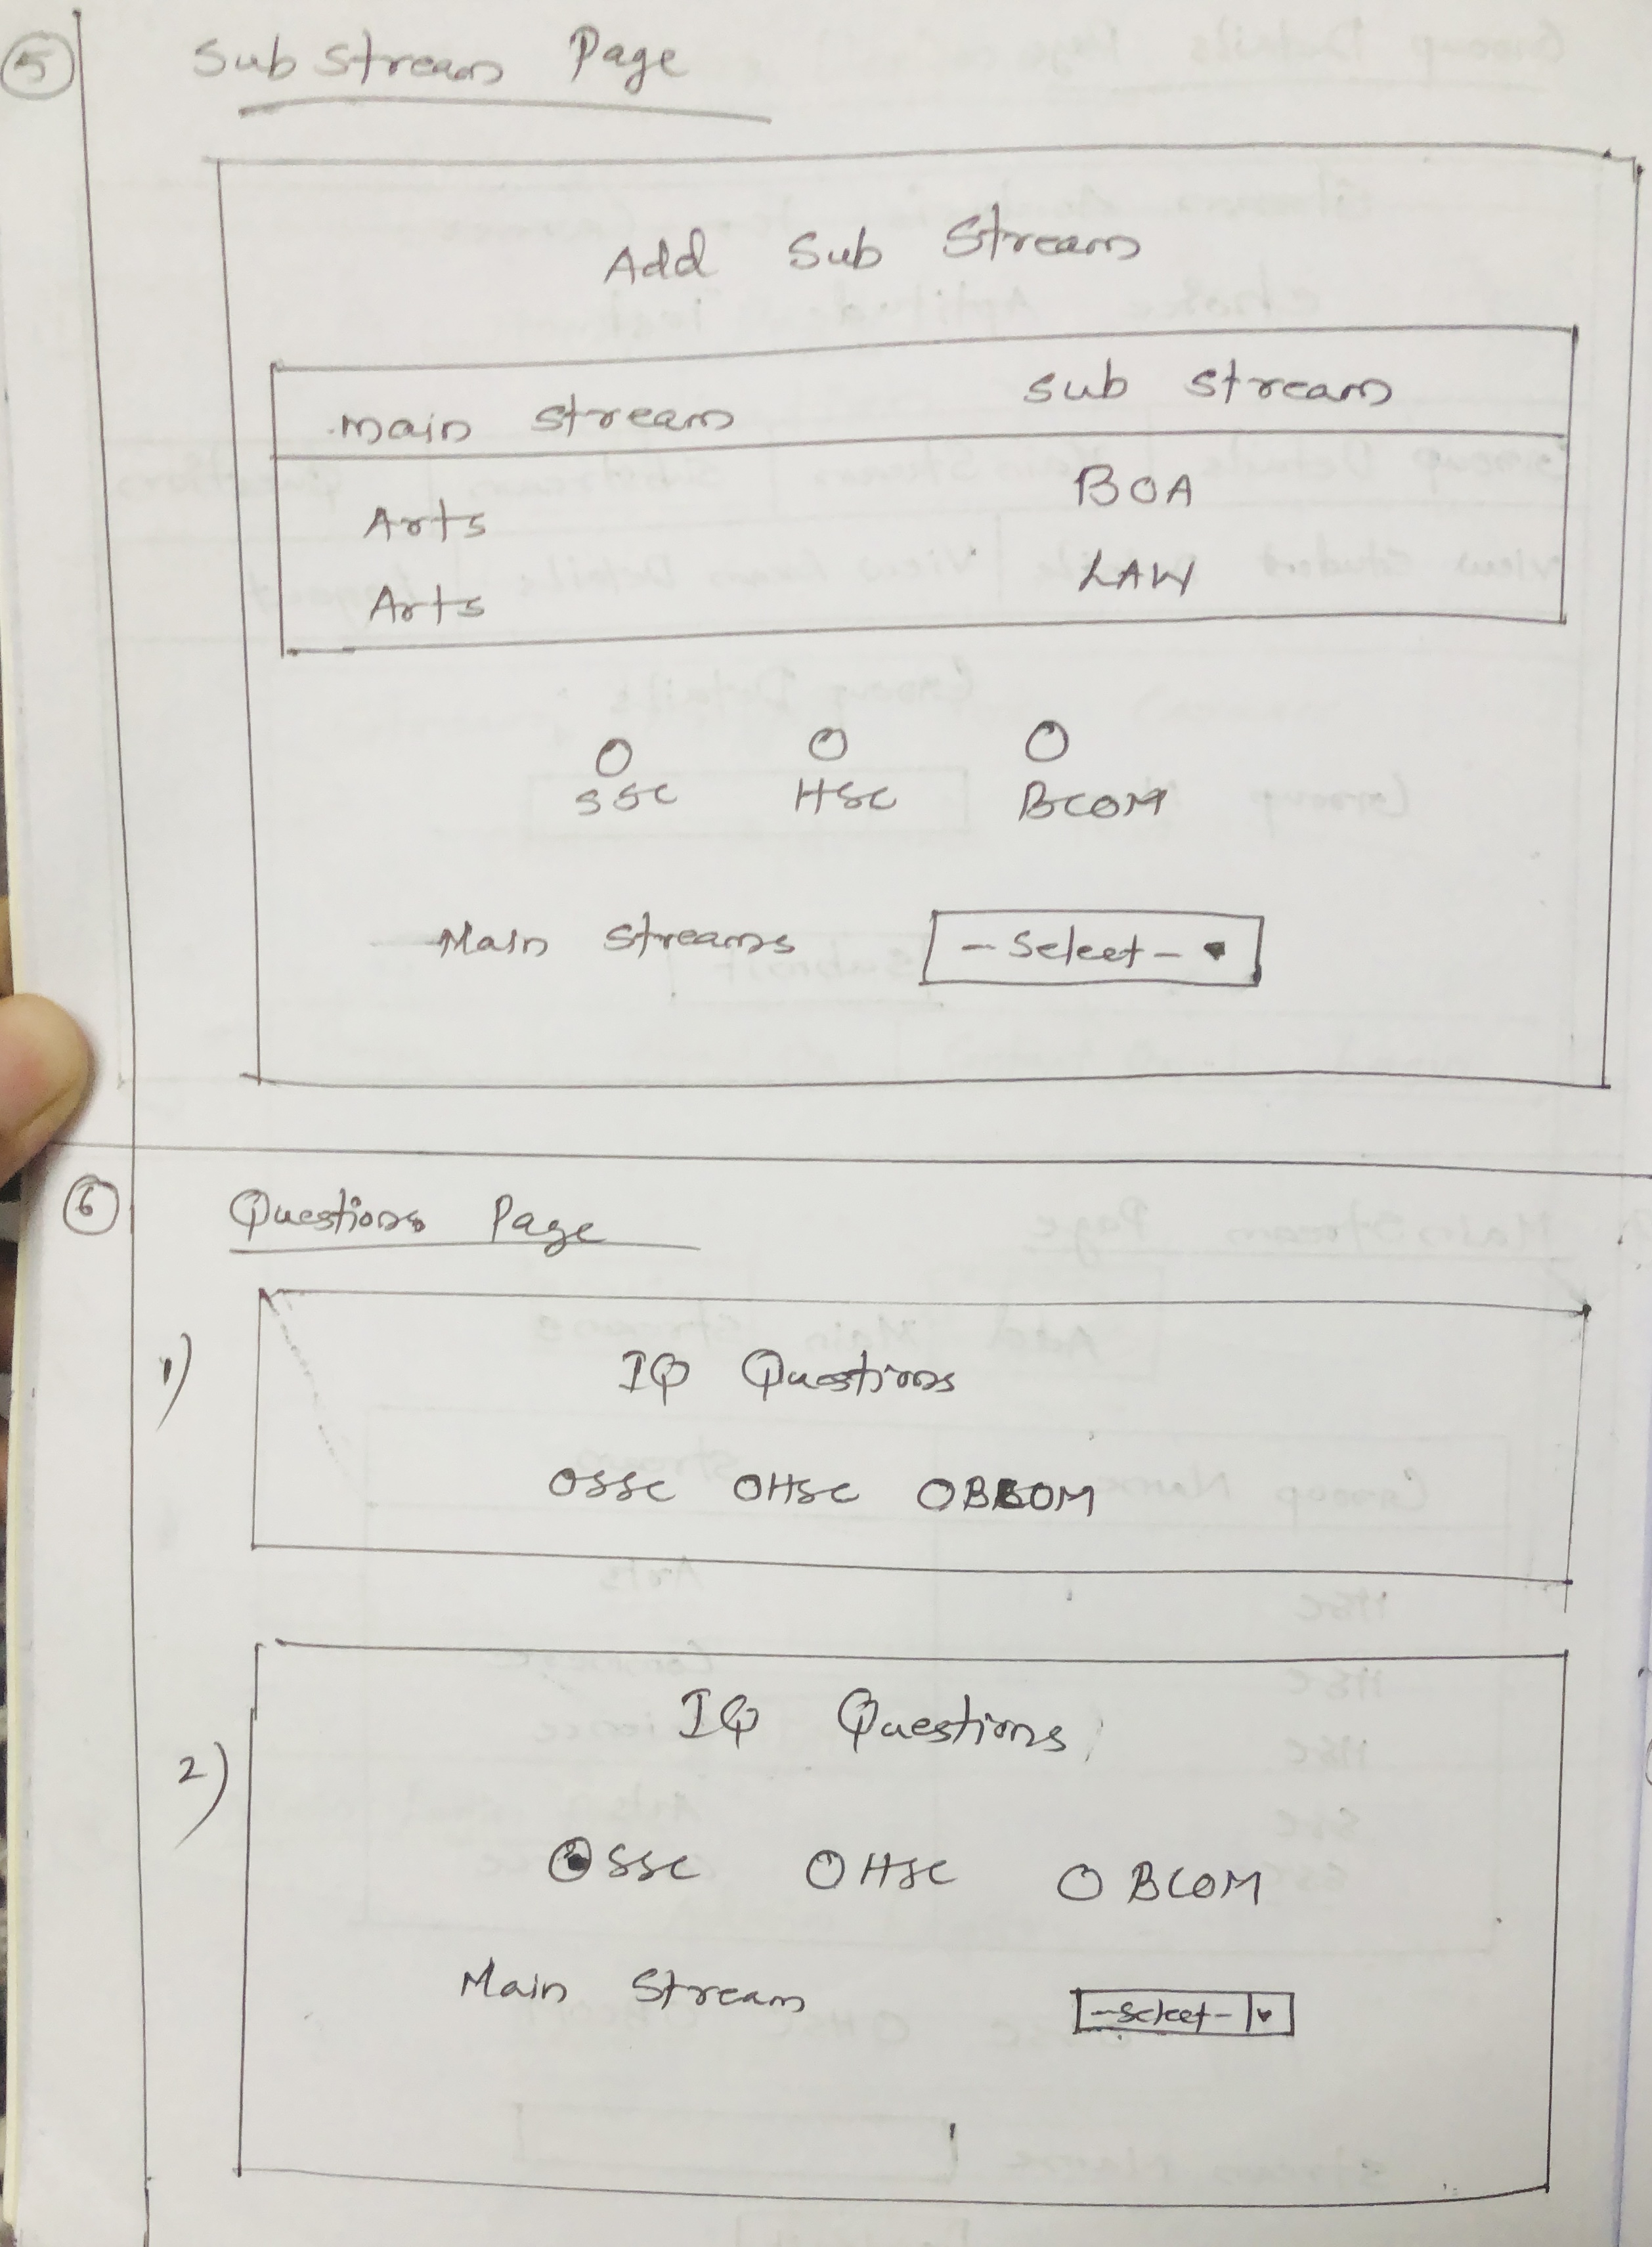 5
Sub Stream Page
Add Sub Stream
main stream sub stream
Arts BOA
Arts LAW
SSC HSC BCOM
Main Streams - Select -
6 Questions Page
1)
IQ Questions
SSC HSC BCOM
2)
IQ Questions
SSC HSC BCOM
Main Stream -Select-